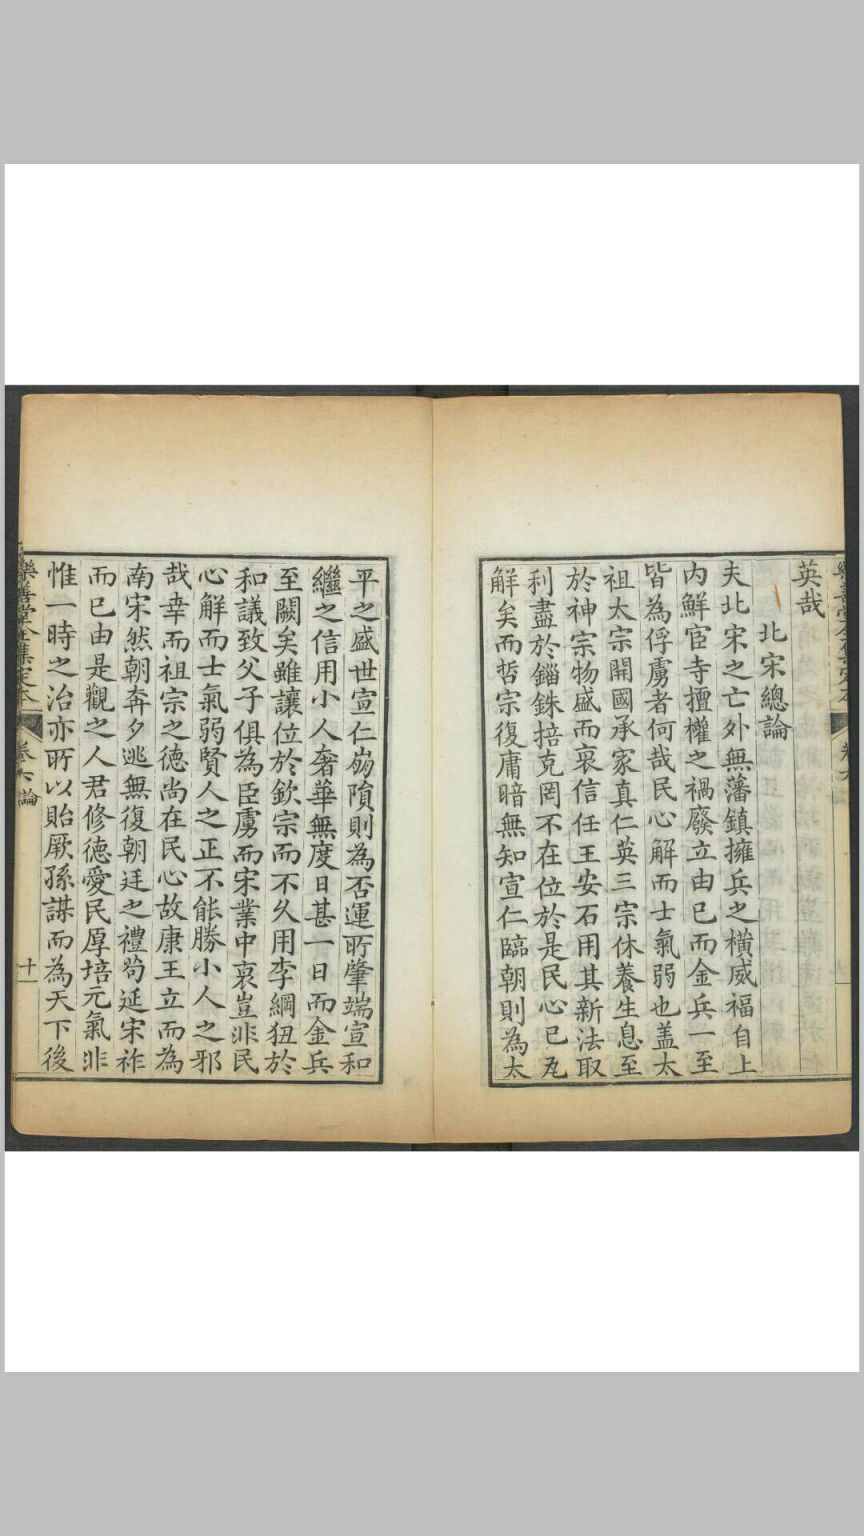 英哉
北宋總論
夫北宋之亡外無藩鎮擁兵之橫威福自上
內鮮宦寺擅權之禍廢立由已而金兵一至
皆為俘虜者何哉民心解而士氣弱也盖太
祖太宗開國承家真仁英三宗休養生息至
於神宗物盛而衰信任王安石用其新法取
利盡於錙銖掊克罔不在位於是民心已瓦
解矣而哲宗復庸暗無知宣仁臨朝則為太
平之盛世宣仁崩隕則為否運所肇端宣和
繼之信用小人奢華無度日甚一日而金兵
至闕矣雖讓位於欽宗而不久用李綱狃於
和議致父子俱為臣虜而宋業中衰豈非民
心解而士氣弱賢人之正不能勝小人之邪
哉幸而祖宗之德尚在民心故康王立而為
南宋然朝奔夕逃無復朝廷之禮苟延宋祚
而已由是觀之人君修德愛民厚培元氣非
惟一時之治亦所以貽厥孫謀而為天下後
樂善堂全集定本 卷六 論 十一